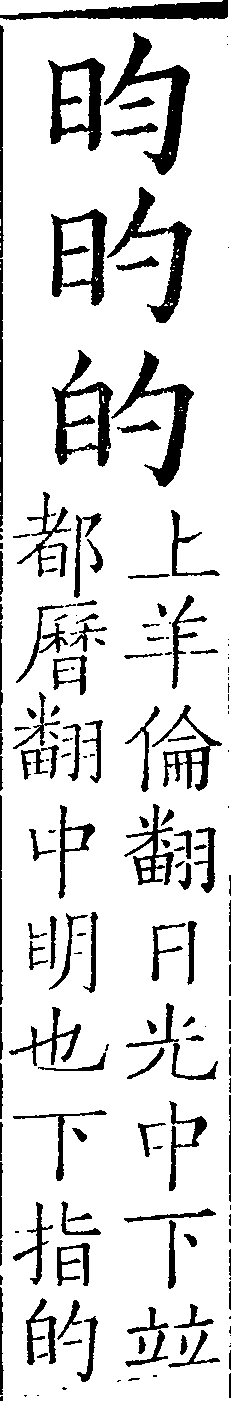 昀旳的
上羊倫翻日光中下竝
都曆翻中明也下指的